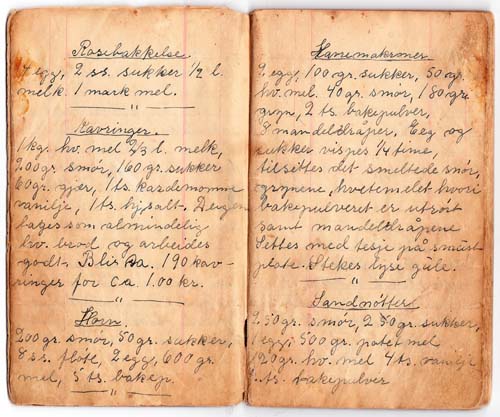 Rosebakkelse
4 egg, 2 ss. sukker ½ l.
melk 1 mark mel.
Kavringer.
1 kg. hv. mel 2/3 l. melk,
200 gr. smör, 160 gr. sukker
60 gr. gjær, 1 ts. kardemomme
vanilje, 1 ts. hj. salt. Deigen
lages som almindelig
hv. bröd og arbeides
godt. Blir ca. 190 kav-
ringer for ca. 1.00 kr.
Horn.
200 gr. smör, 50 gr. sukker,
8 ss. flöte, 2 egg, 600 gr.
mel, 5 ts. bakep.
Havremakroner.
2 egg, 100 gr. sukker, 50 gr.
hv. mel. 40 gr. smör, 180 gr.
gryn, 2 ts. bakepulver,
8 mandeldråper. Egg og
sukker vispes ¼ time,
tilsettes det smeltede smör,
grynene, hvetemelet hvori
bakepulveret er utrört
samt mandeldråpene
Settes med tesje på smurt
plate. Stekes lyse gule.
Sandnötter
250 gr. smör, 250 gr. sukker,
1 egg, 500 gr. potet mel
120 gr. hv. mel 4 ts. vanilje
ts. bakepulver